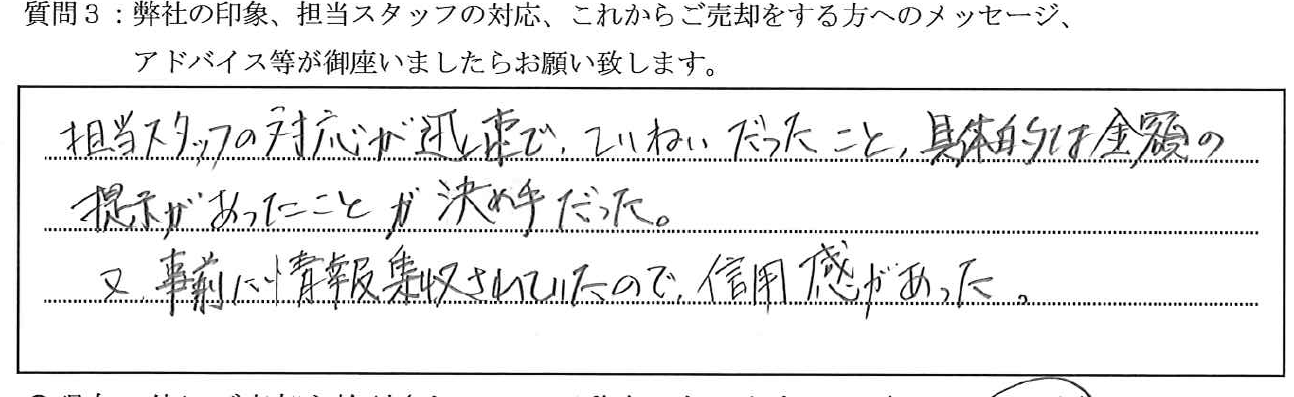 質問３：弊社の印象、担当スタッフの対応、これからご売却をする方へのメッセージ、
アドバイス等が御座いましたらお願い致します。
担当スタッフの対応が迅速で、ていねいだったこと、具体的は金額の
提示があったことが決め手だった。
又、事前に情報集収されていたので、信用感があった。